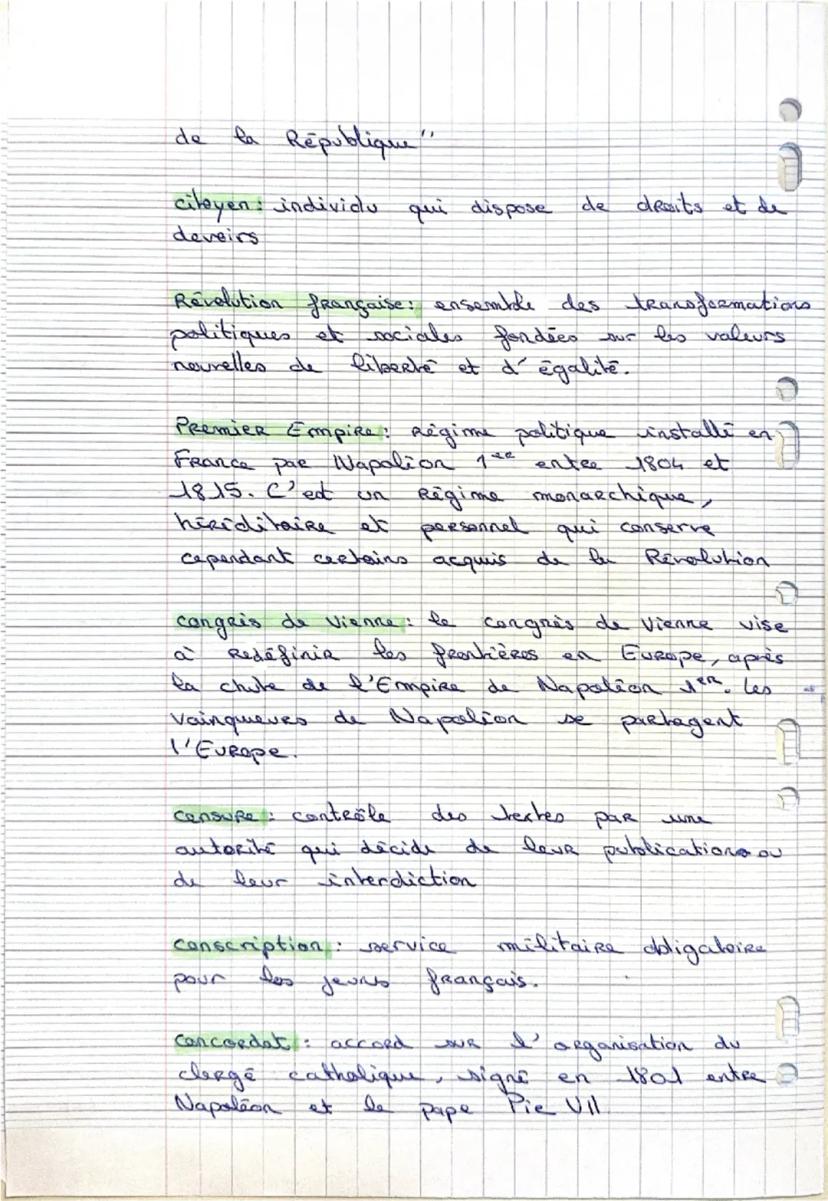 de la République"
citoyen : individu qui dispose de droits et de
devoirs
Révolution française : ensemble des transformations
politiques et sociales fondées sur les valeurs
nouvelles de liberté et d'égalité.
Premier Empire : régime politique installé en
France par Napoléon 1er entre 1804 et
1815. C'est un régime monarchique,
héréditaire et personnel qui conserve
cependant certains acquis de la Révolution
congrès de Vienne : le congrès de Vienne vise
à redéfinir les frontières en Europe, après
la chute de l'Empire de Napoléon 1er. Les
vainqueurs de Napoléon se partagent
l'Europe.
censure : contrôle des textes par une
autorité qui décide de leur publication ou
de leur interdiction
conscription : service militaire obligatoire
pour les jeunes français.
concordat : accord sur l'organisation du
clergé catholique, signé en 1801 entre
Napoléon et le pape Pie VII